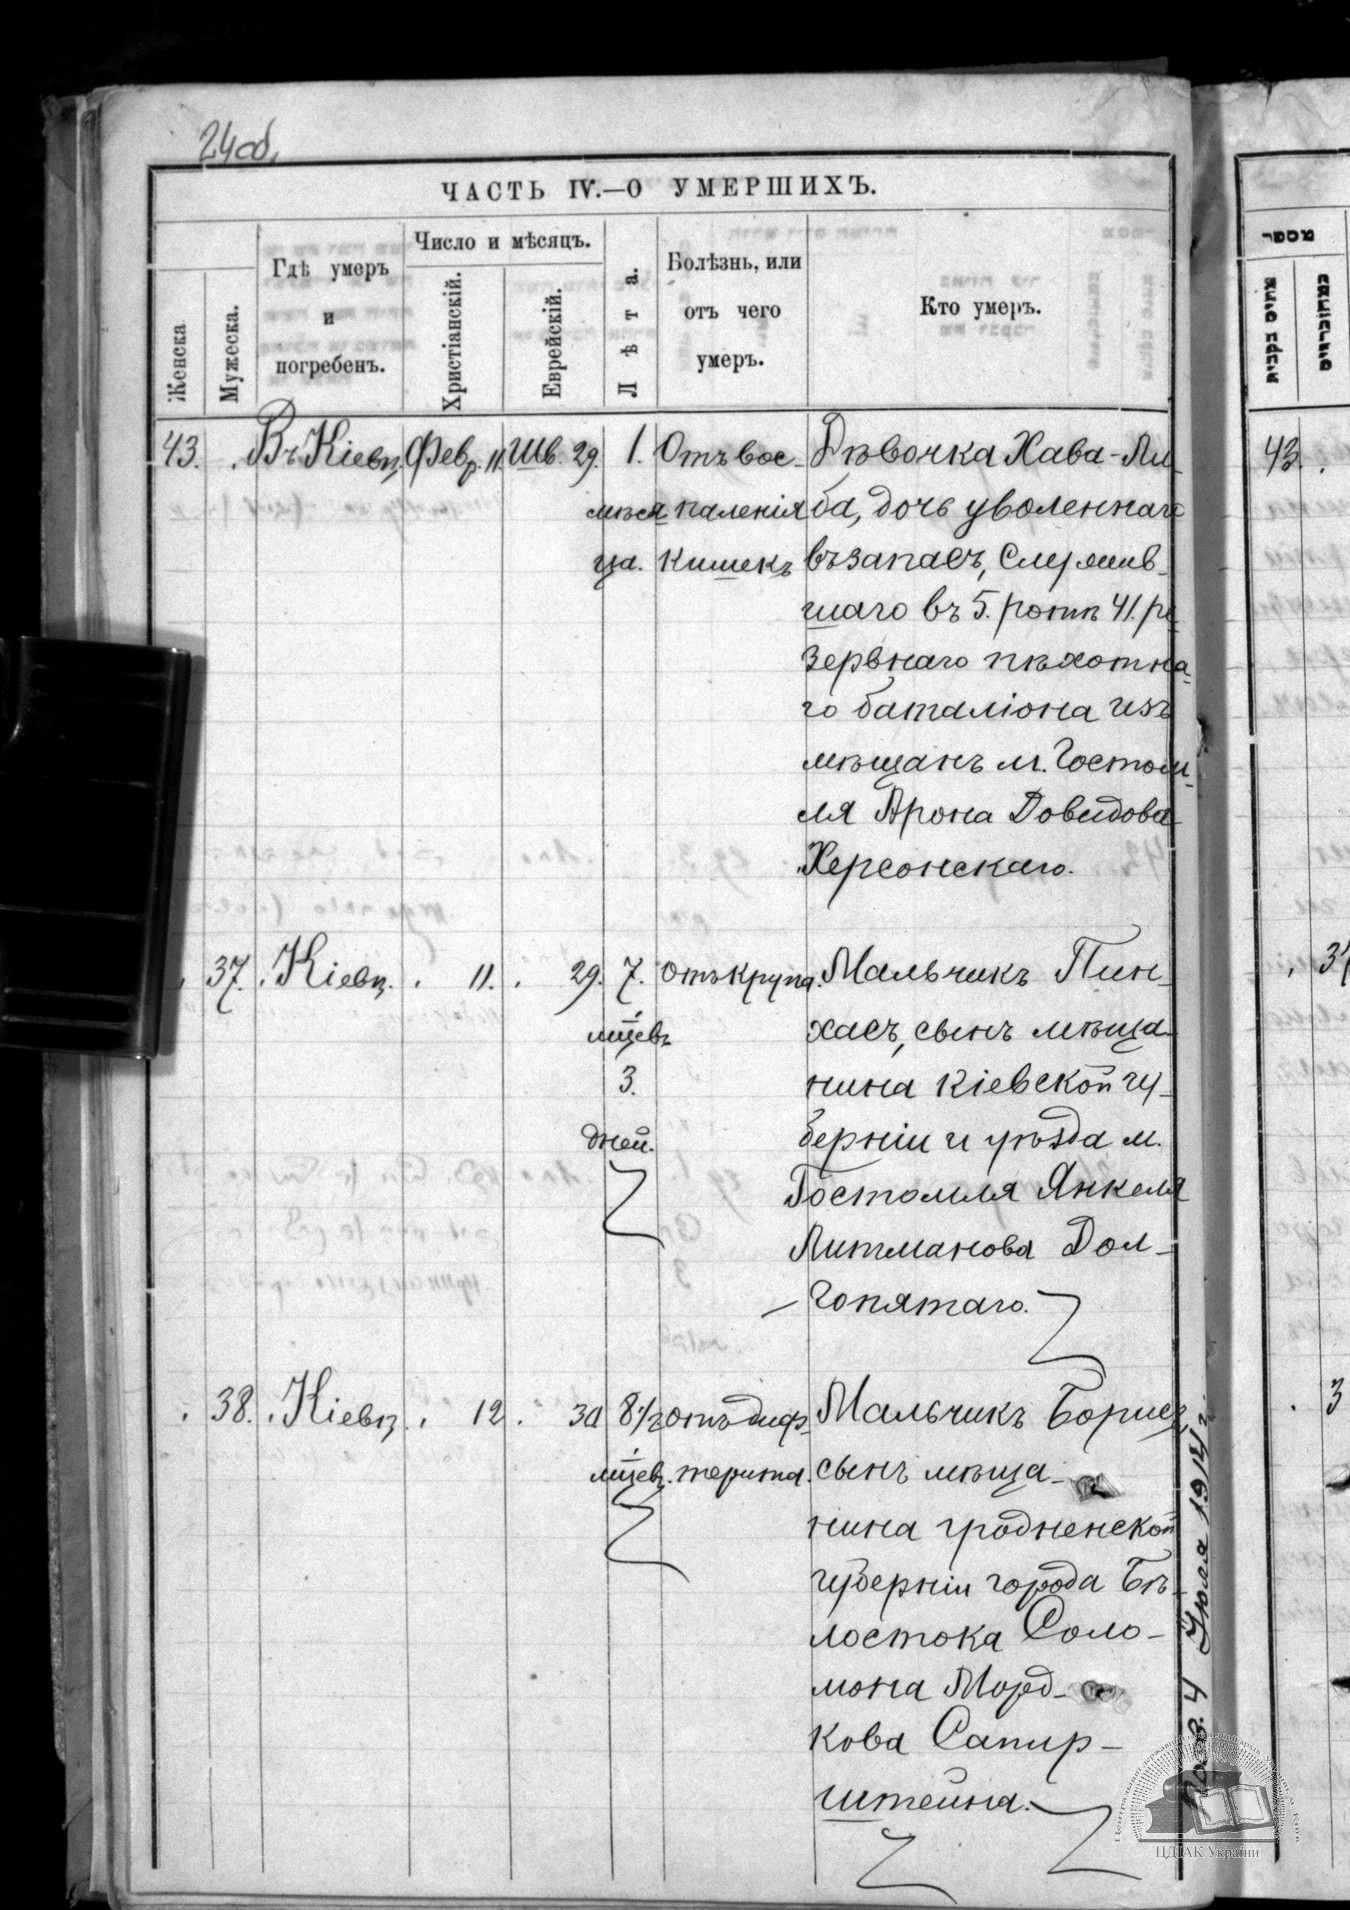 24об.
ЧАСТЬ IV.—О УМЕРШИХЪ.
Женска
Мужеска.
Гдѣ умеръ
и
погребенъ.
Число и мѣсяцъ.
Христіанскій.
Еврейскій.
Лѣта.
Болѣзнь, или
отъ чего
умеръ.
Кто умеръ.
מספר
43. Въ Кіевѣ Февр. 11. Шв. 29. 1. Отъ вос- Дѣвочка Хава-Ли-
мѣся паленія ба, дочь уволеннаго
ца. кишекъ въ запасъ, служив-
шаго въ 5. ротѣ 41. ре-
зервнаго пѣхотна-
го баталіона изъ
мѣщанъ м. Гостом-
ля Арона Довидова
Херсонскаго.
37. Кіевѣ. 11. 29. 7. отъ крупа. Мальчикъ Пин-
мцевъ хасъ, сынъ мѣща-
3. нина Кіевской гу-
дней. берніи и уѣзда м.
Гостомля Янкеля
Литманова Дол-
гопятаго.
38. Кіевѣ. 12. 30 8½ отъ диф- Мальчикъ Борисъ,
мцевъ. терита. сынъ мѣща-
нина гродненской
губерніи города Бѣ-
лостока Соло-
мона Морд-
кова Сапир-
штейна.
43.
Іюля 1914 г.
ЦДІАК України